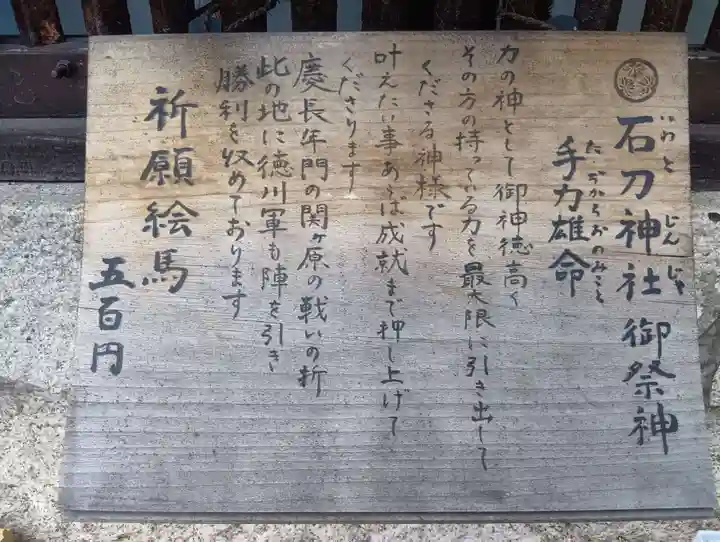 石刀神社 御祭神
いわと じんじゃ
手力雄命
たぢからおのみこと
力の神として御神徳高く
その方の持っている力を最大限に引き出して
くださる神様です
叶えたい事あらば成就まで押し上げて
くださります
慶長年間の関ヶ原の戦いの折
此の地に徳川軍も陣を引き
勝利を収めております
祈願絵馬
五百円